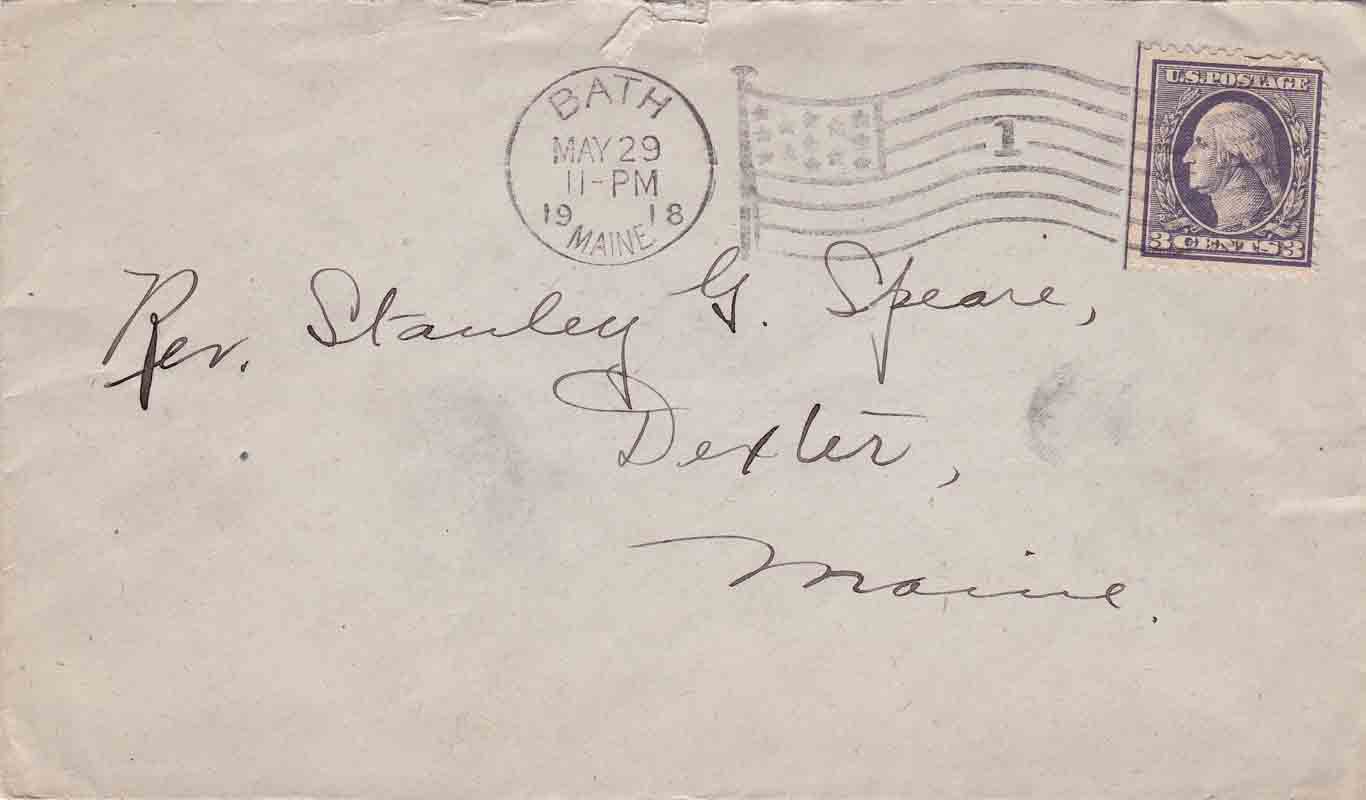 BATH
MAY 29
11-PM
19 18
MAINE
1
U.S. POSTAGE
3 CENTS 3
Rev. Stanley G. Speare,
Dexter,
Maine.